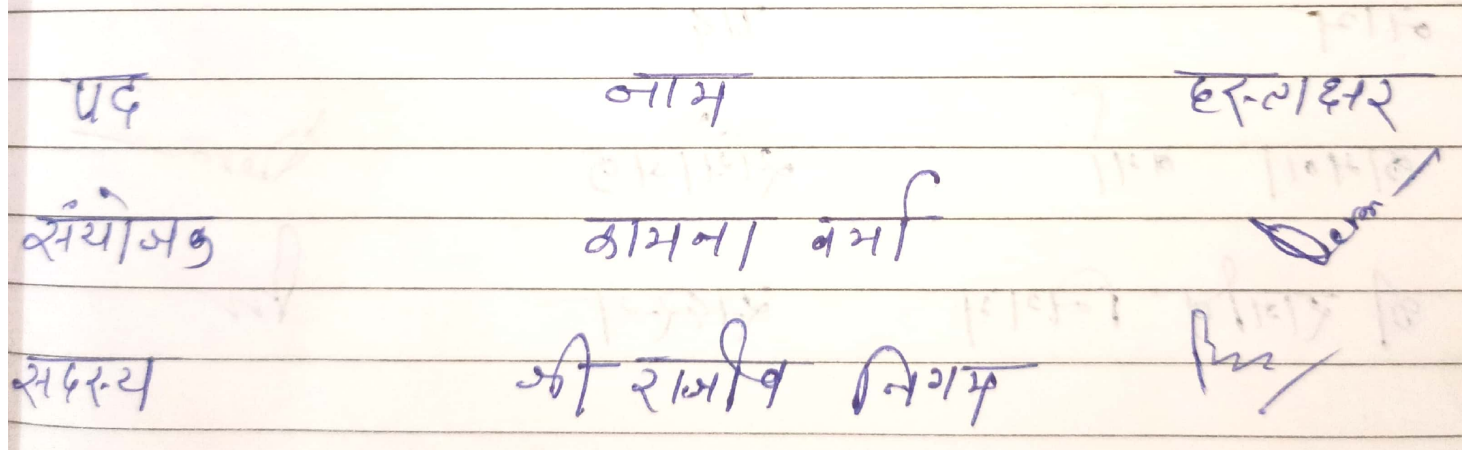 पद नाम हस्ताक्षर
संयोजक कामना वर्मा
सदस्य श्री राजीव निगम